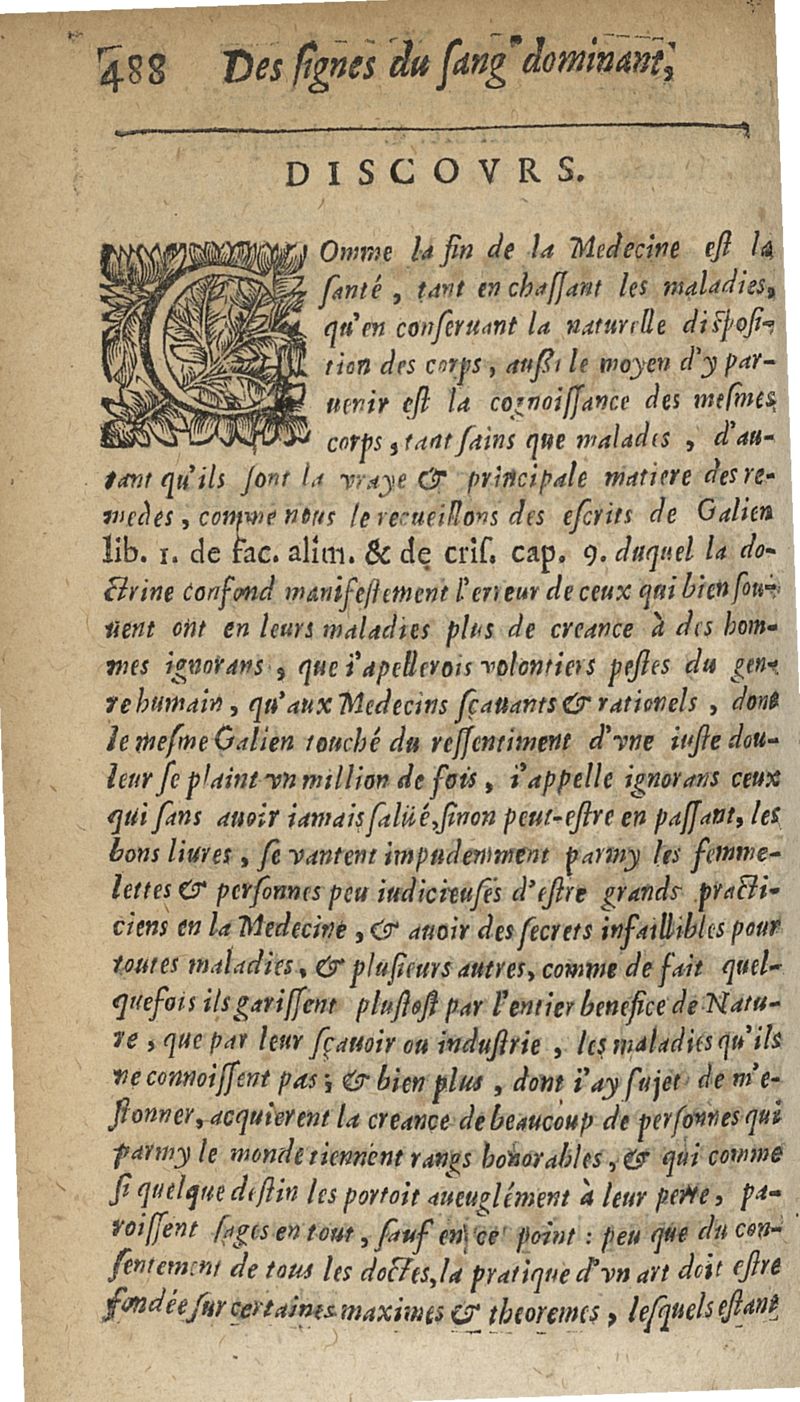 488 Des ſignes du ſang dominant,
DISCOVRS.
COmme la fin de la Medecine eſt la
ſanté, tant en chaſſant les maladies,
qu'en conſeruant la naturelle diſpoſi-
tion des corps, auſſi le moyen d'y par-
uenir eſt la cognoiſſance des meſmes
corps, tant ſains que malades, d'au-
tant qu'ils ſont la vraye & principale matiere des re-
medes, comme nous le recueillons des eſcrits de Galien
lib. 1. de fac. alim. & de criſ. cap. 9. duquel la do-
ctrine confond manifeſtement l'erreur de ceux qui bien ſou-
uent ont en leurs maladies plus de creance à des hom-
mes ignorans, que i'apellerois volontiers peſtes du gen-
re humain, qu'aux Medecins ſçauants & rationels, dont
le meſme Galien touché du reſſentiment d'vne iuſte dou-
leur ſe plaint vn million de fois, i'appelle ignorans ceux
qui ſans auoir iamais ſalüé, ſinon peut-eſtre en paſſant, les
bons liures, ſe vantent impudemment parmy les femme-
lettes & perſonnes peu iudicieuſes d'eſtre grands practi-
ciens en la Medecine, & auoir des ſecrets infaillibles pour
toutes maladies, & pluſieurs autres, comme de fait quel-
quefois ils gariſſent pluſtoſt par l'entier benefice de Natu-
re, que par leur ſçauoir ou induſtrie, les maladies qu'ils
ne connoiſſent pas; & bien plus, dont i'ay ſujet de m'e-
ſtonner, acquierent la creance de beaucoup de perſonnes qui
parmy le monde tiennent rangs honorables, & qui comme
ſi quelque deſtin les portoit aueuglément à leur perte, pa-
roiſſent ſages en tout, ſauf en ce point : peu que du con-
ſentement de tous les doctes, la pratique d'vn art doit eſtre
fondée ſur certaines maximes & theoremes, leſquels eſtant